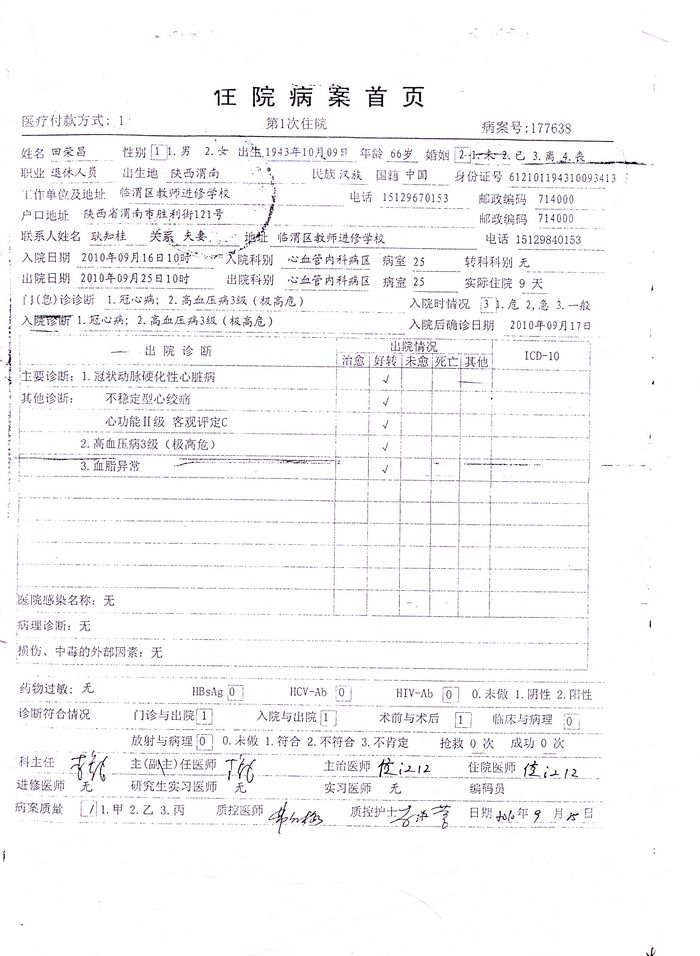 住院病案首页
医疗付款方式: 1 第1次住院 病案号:177638
姓名 田荣昌 性别 1 1.男 2.女 出生 1943年10月09日 年龄 66岁 婚姻 2 1.未 2.已 3.离 4.丧
职业 退休人员 出生地 陕西渭南 民族 汉族 国籍 中国 身份证号 612101194310093413
工作单位及地址 临渭区教师进修学校 电话 15129670153 邮政编码 714000
户口地址 陕西省渭南市胜利街121号 邮政编码 714000
联系人姓名 耿知桂 关系 夫妻 地址 临渭区教师进修学校 电话 15129840153
入院日期 2010年09月16日10时 入院科别 心血管内科病区 病室 25 转科科别 无
出院日期 2010年09月25日10时 出院科别 心血管内科病区 病室 25 实际住院 9 天
门(急)诊诊断 1.冠心病; 2.高血压病3级(极高危) 入院时情况 3 1.危 2.急 3.一般
入院诊断 1.冠心病; 2.高血压病3级(极高危) 入院后确诊日期 2010年09月17日
出院诊断 出院情况 ICD-10
治愈 好转 未愈 死亡 其他
主要诊断: 1.冠状动脉硬化性心脏病 √
其他诊断: 不稳定型心绞痛 √
心功能Ⅱ级 客观评定C √
2.高血压病3级(极高危) √
3.血脂异常 √
医院感染名称: 无
病理诊断: 无
损伤、中毒的外部因素: 无
药物过敏: 无 HBsAg 0 HCV-Ab 0 HIV-Ab 0 0.未做 1.阴性 2.阳性
诊断符合情况 门诊与出院 1 入院与出院 1 术前与术后 1 临床与病理 0
放射与病理 0 0.未做 1.符合 2.不符合 3.不肯定 抢救 0 次 成功 0 次
科主任 主(副主)任医师 主治医师 住院医师
进修医师 无 研究生实习医师 无 实习医师 无 编码员
病案质量 1 1.甲 2.乙 3.丙 质控医师 质控护士 日期 2010年 9 月 25 日